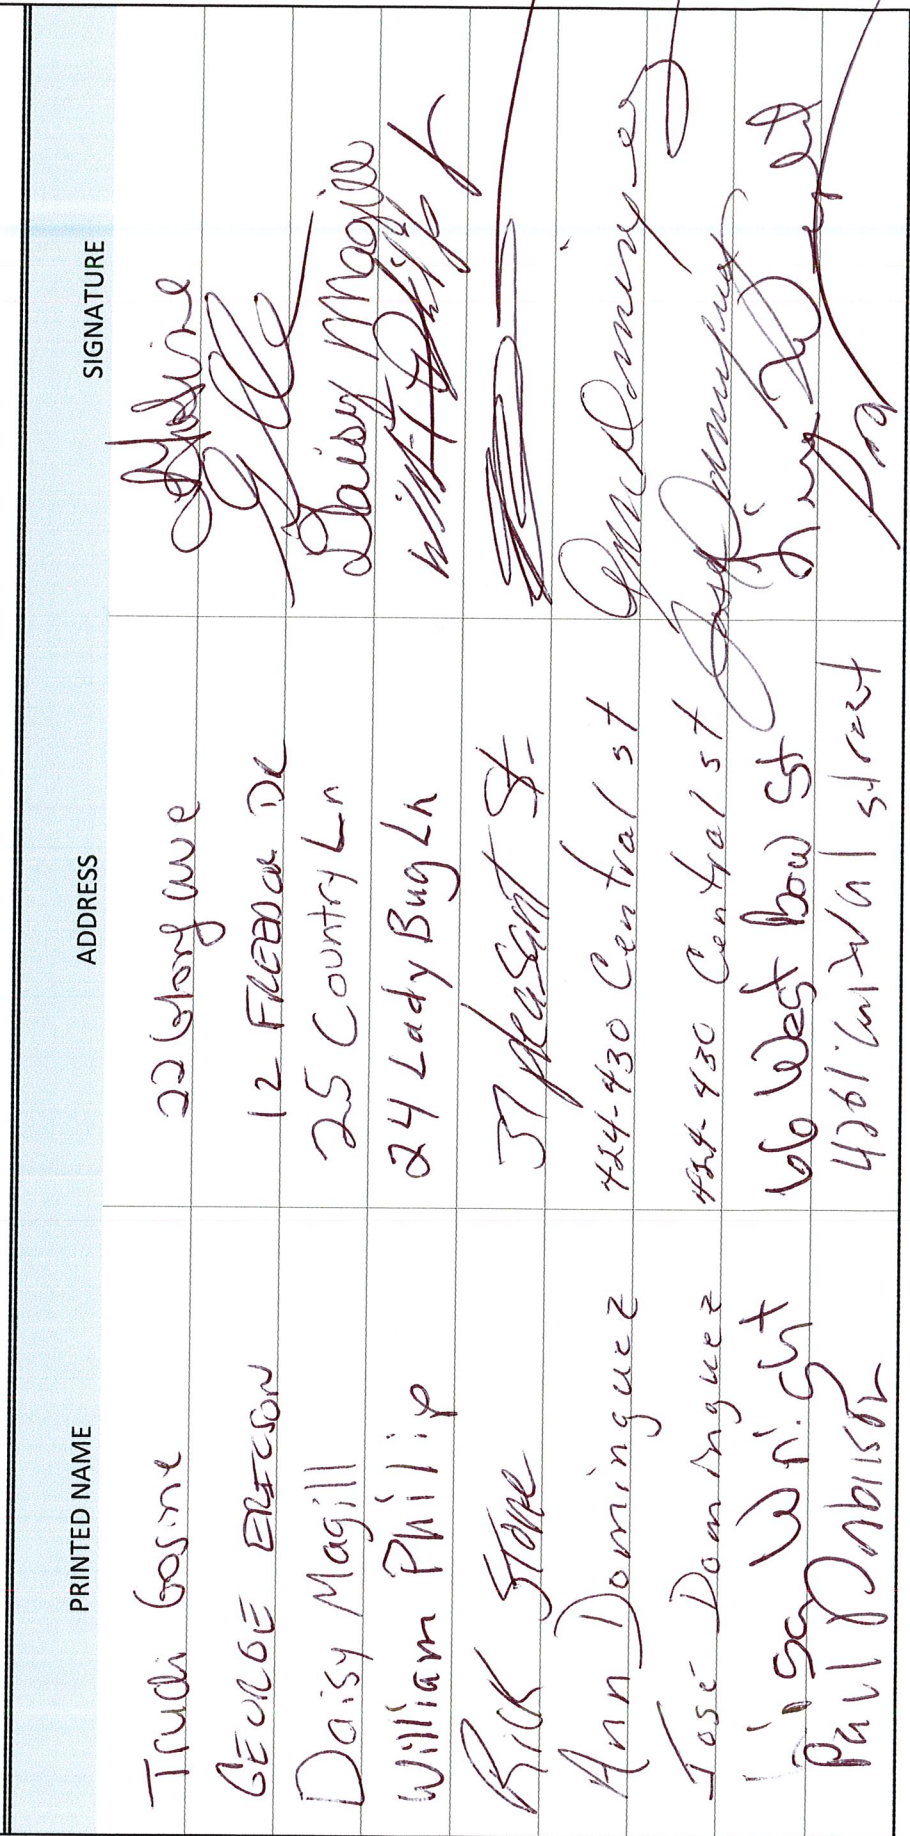 PRINTED NAME ADDRESS SIGNATURE
Trudi Gosine 22 Glory ave
GEORGE ERICSON 12 FREEDOM DR
Daisy Magill 25 Country Ln Daisy Magill
William Philip 24 Lady Bug Ln
Rick Stone 37 pleasant St.
Ann Dominguez 424-430 Central st Ann Dominguez
José Dominguez 424-430 Central st José Dominguez
Lisa Wright 66 West Bow St
Paul street